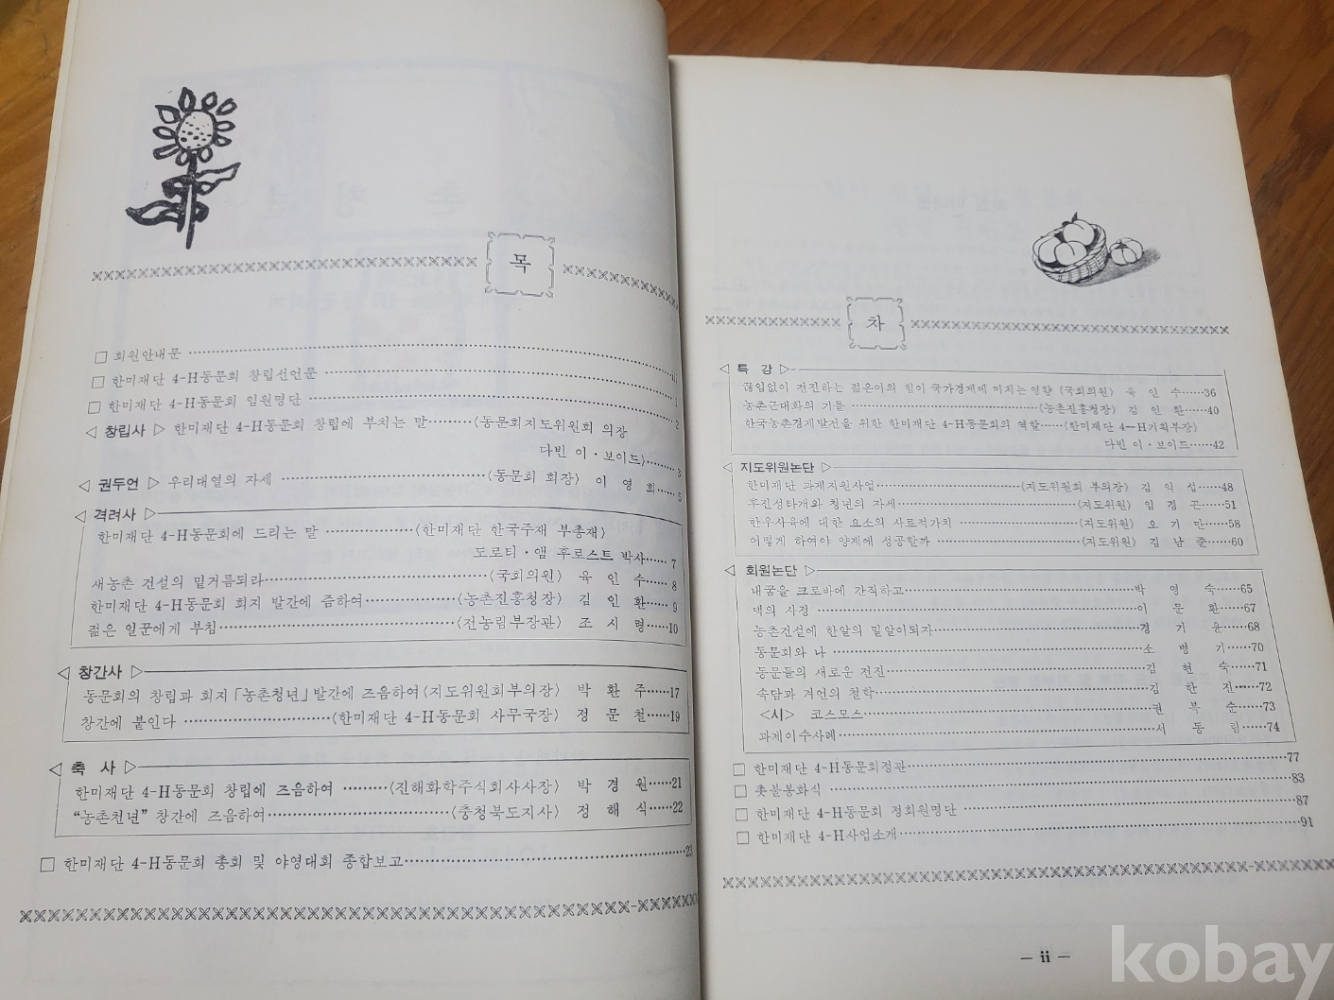 목
□ 회원안내문 iii
□ 한미재단 4-H동문회 창립선언문 1
□ 한미재단 4-H동문회 임원명단 2
◁ 창립사 ▷ 한미재단 4-H동문회 창립에 부치는 말………〈동문회지도위원회 의장
다빈 이·보이드〉………3
◁ 권두언 ▷ 우리대열의 자세 ………〈동문회 회장〉 이 영 희……5
◁ 격려사 ▷
한미재단 4-H동문회에 드리는 말 ………〈한미재단 한국주재 부총재〉
도로티·앰 후로스트 박사……7
새농촌 건설의 밑거름되라………〈국회의원〉 육 인 수……8
한미재단 4-H동문회 회지 발간에 즘하여………〈농촌진흥청장〉 김 인 환……9
젊은 일꾼에게 부침………〈전농림부장관〉 조 시 형……10
◁ 창간사 ▷
동문회의 창립과 회지「농촌청년」발간에 즈음하여〈지도위원회부의장〉 박 환 주……17
창간에 붙인다 ………〈한미재단 4-H동문회 사무국장〉 정 문 철……19
◁ 축 사 ▷
한미재단 4-H동문회 창립에 즈음하여 ………〈진해화학주식회사사장〉 박 경 원……21
“농촌천년” 창간에 즈음하여………〈충청북도지사〉 정 해 식……22
□ 한미재단 4-H동문회 총회 및 야영대회 종합보고………23
차
◁ 특 강 ▷
끊임없이 전진하는 젊은이의 힘이 국가경제에 미치는 영향 (국회의원) 육 인 수……36
농촌근대화의 기틀 ………〈농촌진흥청장〉 김 인 환……40
한국농촌경제발전을 위한 한미재단 4-H동문회의 역할……〈한미재단 4-H기획부장〉
다빈 이·보이드……42
◁ 지도위원논단 ▷
한미재단 과제지원사업………〈지도위원회 부의장〉 김 익 섭……48
후진성타개와 청년의 자세………〈지도위원〉 임 경 곤……51
한우사육에 대한 요소의 사료적가치 ………〈지도위원〉 오 기 만……58
어떻게 하여야 양계에 성공할까 ………〈지도위원〉 김 남 준……60
◁ 회원논단 ▷
내꿈을 크로바에 간직하고………박 영 숙……65
댁의 사정 ………이 문 환……67
농촌건설에 한알의 밀알이되자………경 기 윤……68
동문회와 나 ………소 병 기……70
동문들의 새로운 전진………김 현 숙……71
속담과 격언의 철학………김 한 진……72
<시> 코스모스………권 복 순……73
과제이수사례………서 동 림……74
□ 한미재단 4-H동문회정관………77
□ 촛불봉화식 ………83
□ 한미재단 4-H동문회 정회원명단 ………87
□ 한미재단 4-H사업소개………91
— ii —
kobay